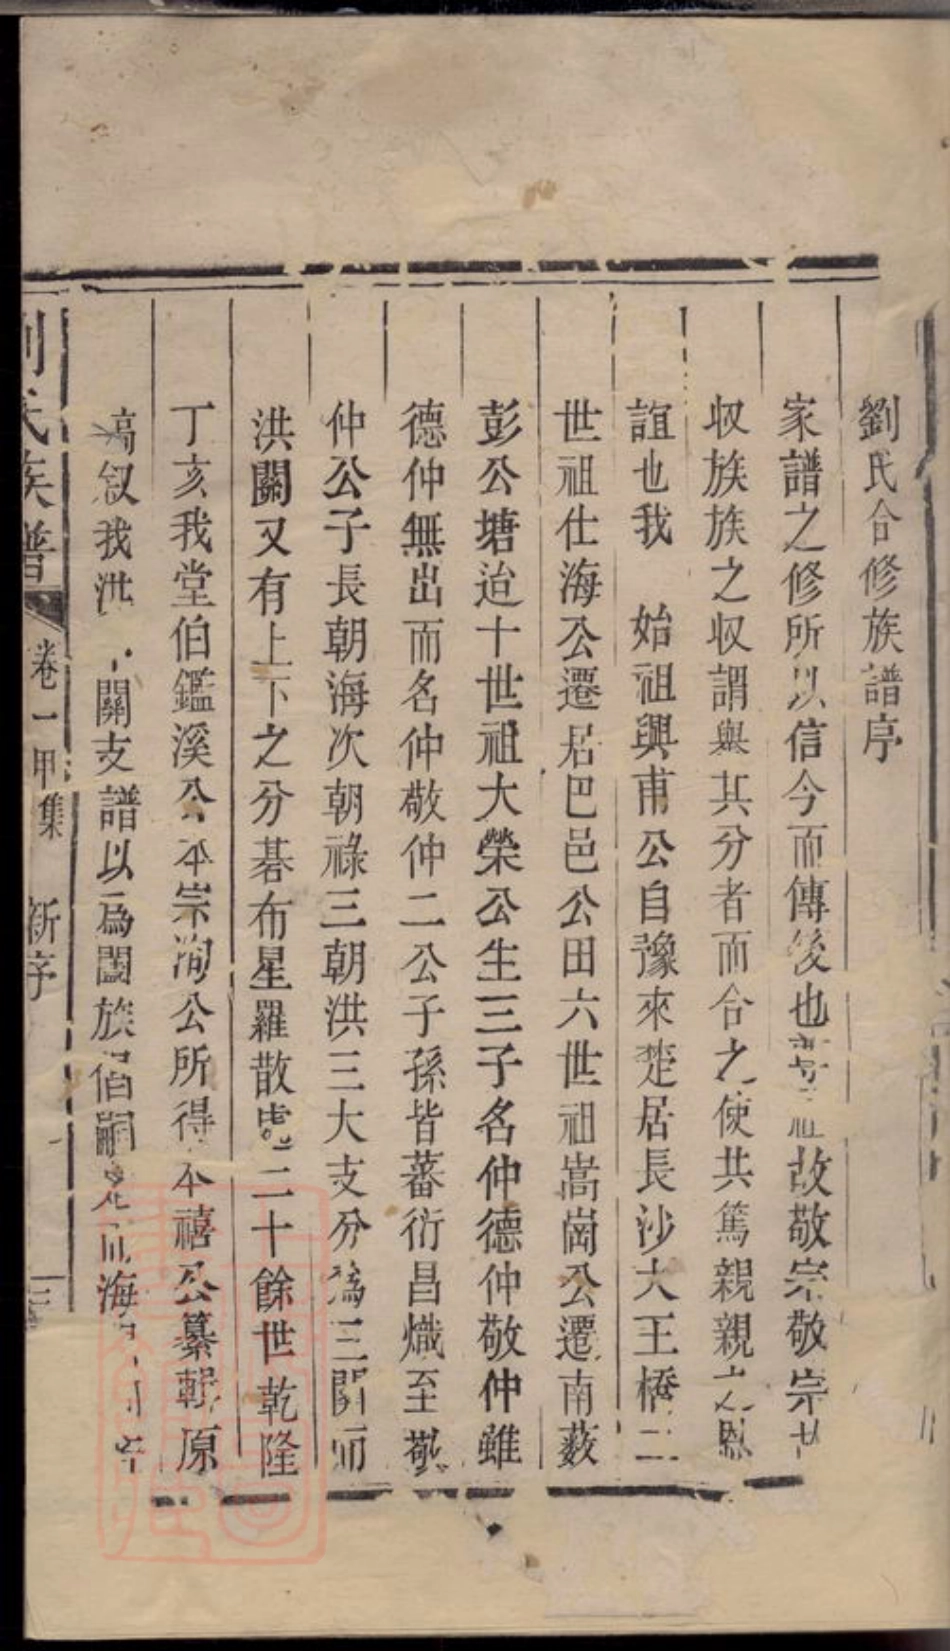 劉氏合修族譜序
家譜之修所以信今而傳後也尊祖故敬宗敬宗故
収族族之収謂與其分者而合之使共篤親親之恩
誼也我　始祖興甫公自豫來楚居長沙大王橋二
世祖仕海公遷居巴邑公田六世祖嵩崗公遷南薮
彭公塘迨十世祖大榮公生三子名仲德仲敬仲雖
德仲無出而名仲敬仲二公子孫皆蕃衍昌熾至敬
仲公子長朝海次朝祿三朝洪三大支分為三關而
洪關又有上下之分碁布星羅散處二十餘世乾隆
丁亥我堂伯鑑溪公本宗洵公所得本禧公纂輯原
稿敘我洪關支譜以為闔族伯嗣海
劉氏族譜
卷一甲集　新序　三